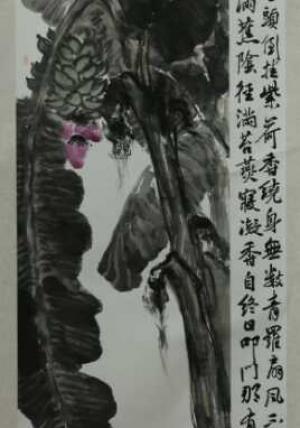 頭倒挂紫荷香繞身無數青羅扇風不
滿蕉陰徑滿苔燕寢凝香自終日叩門那有